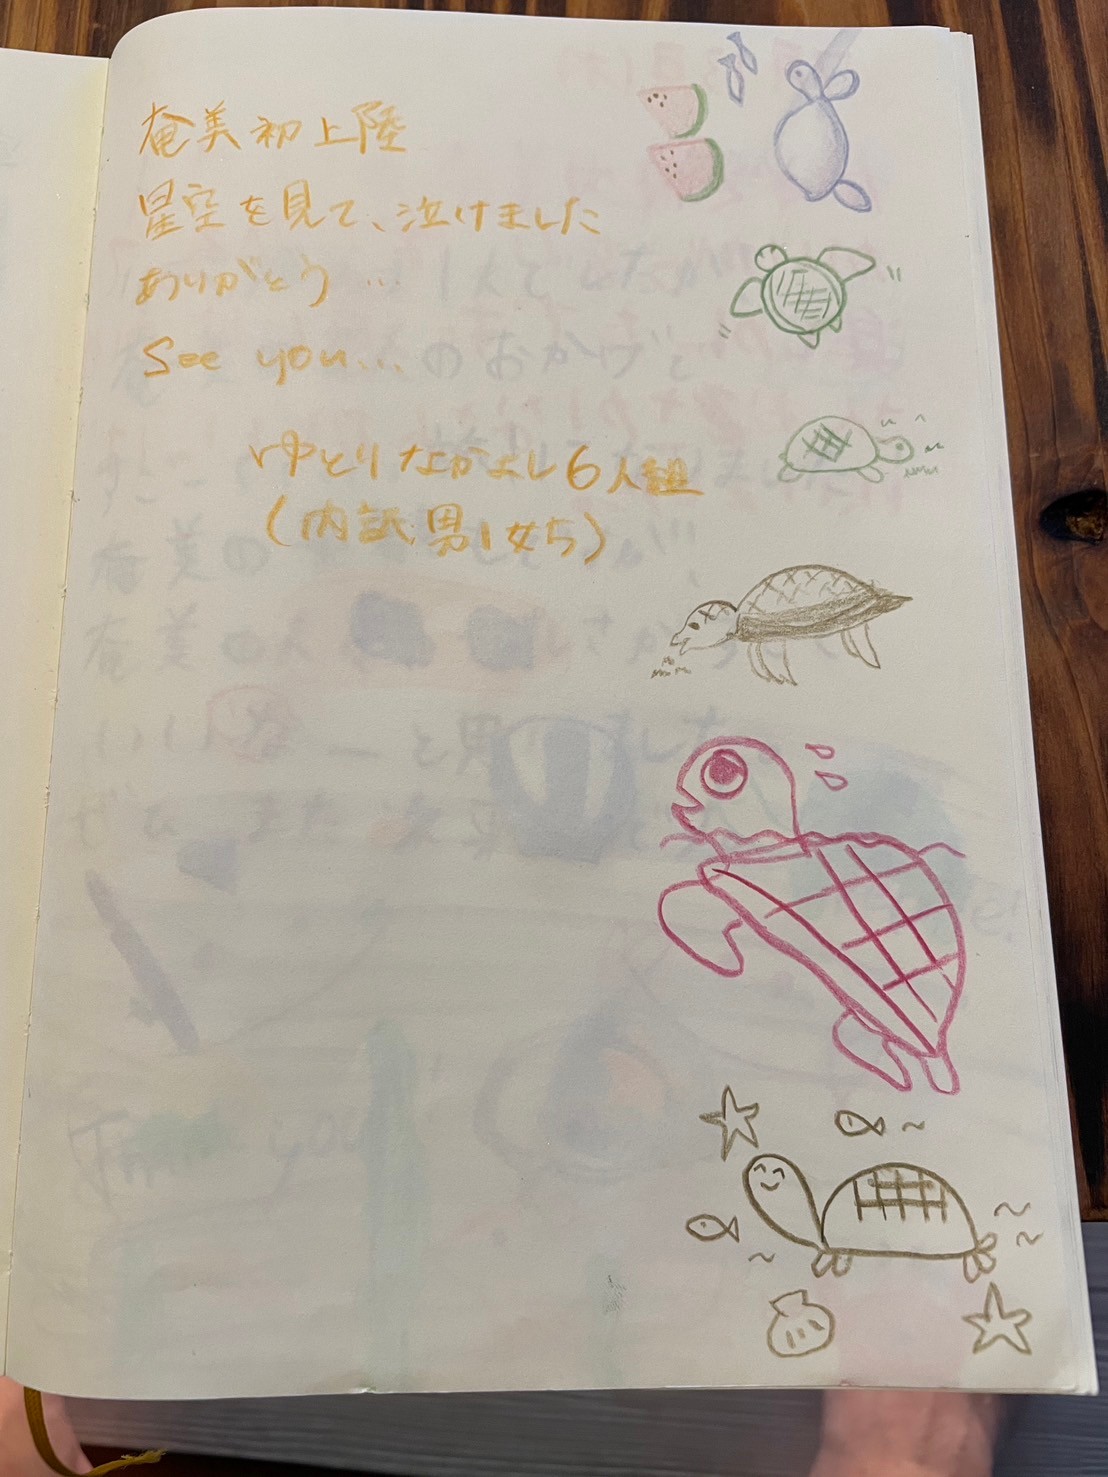 奄美初上陸
星空を見て、泣けました
ありがとう…
See you...
ゆとりなかよし6人組
(内訳、男1女5)